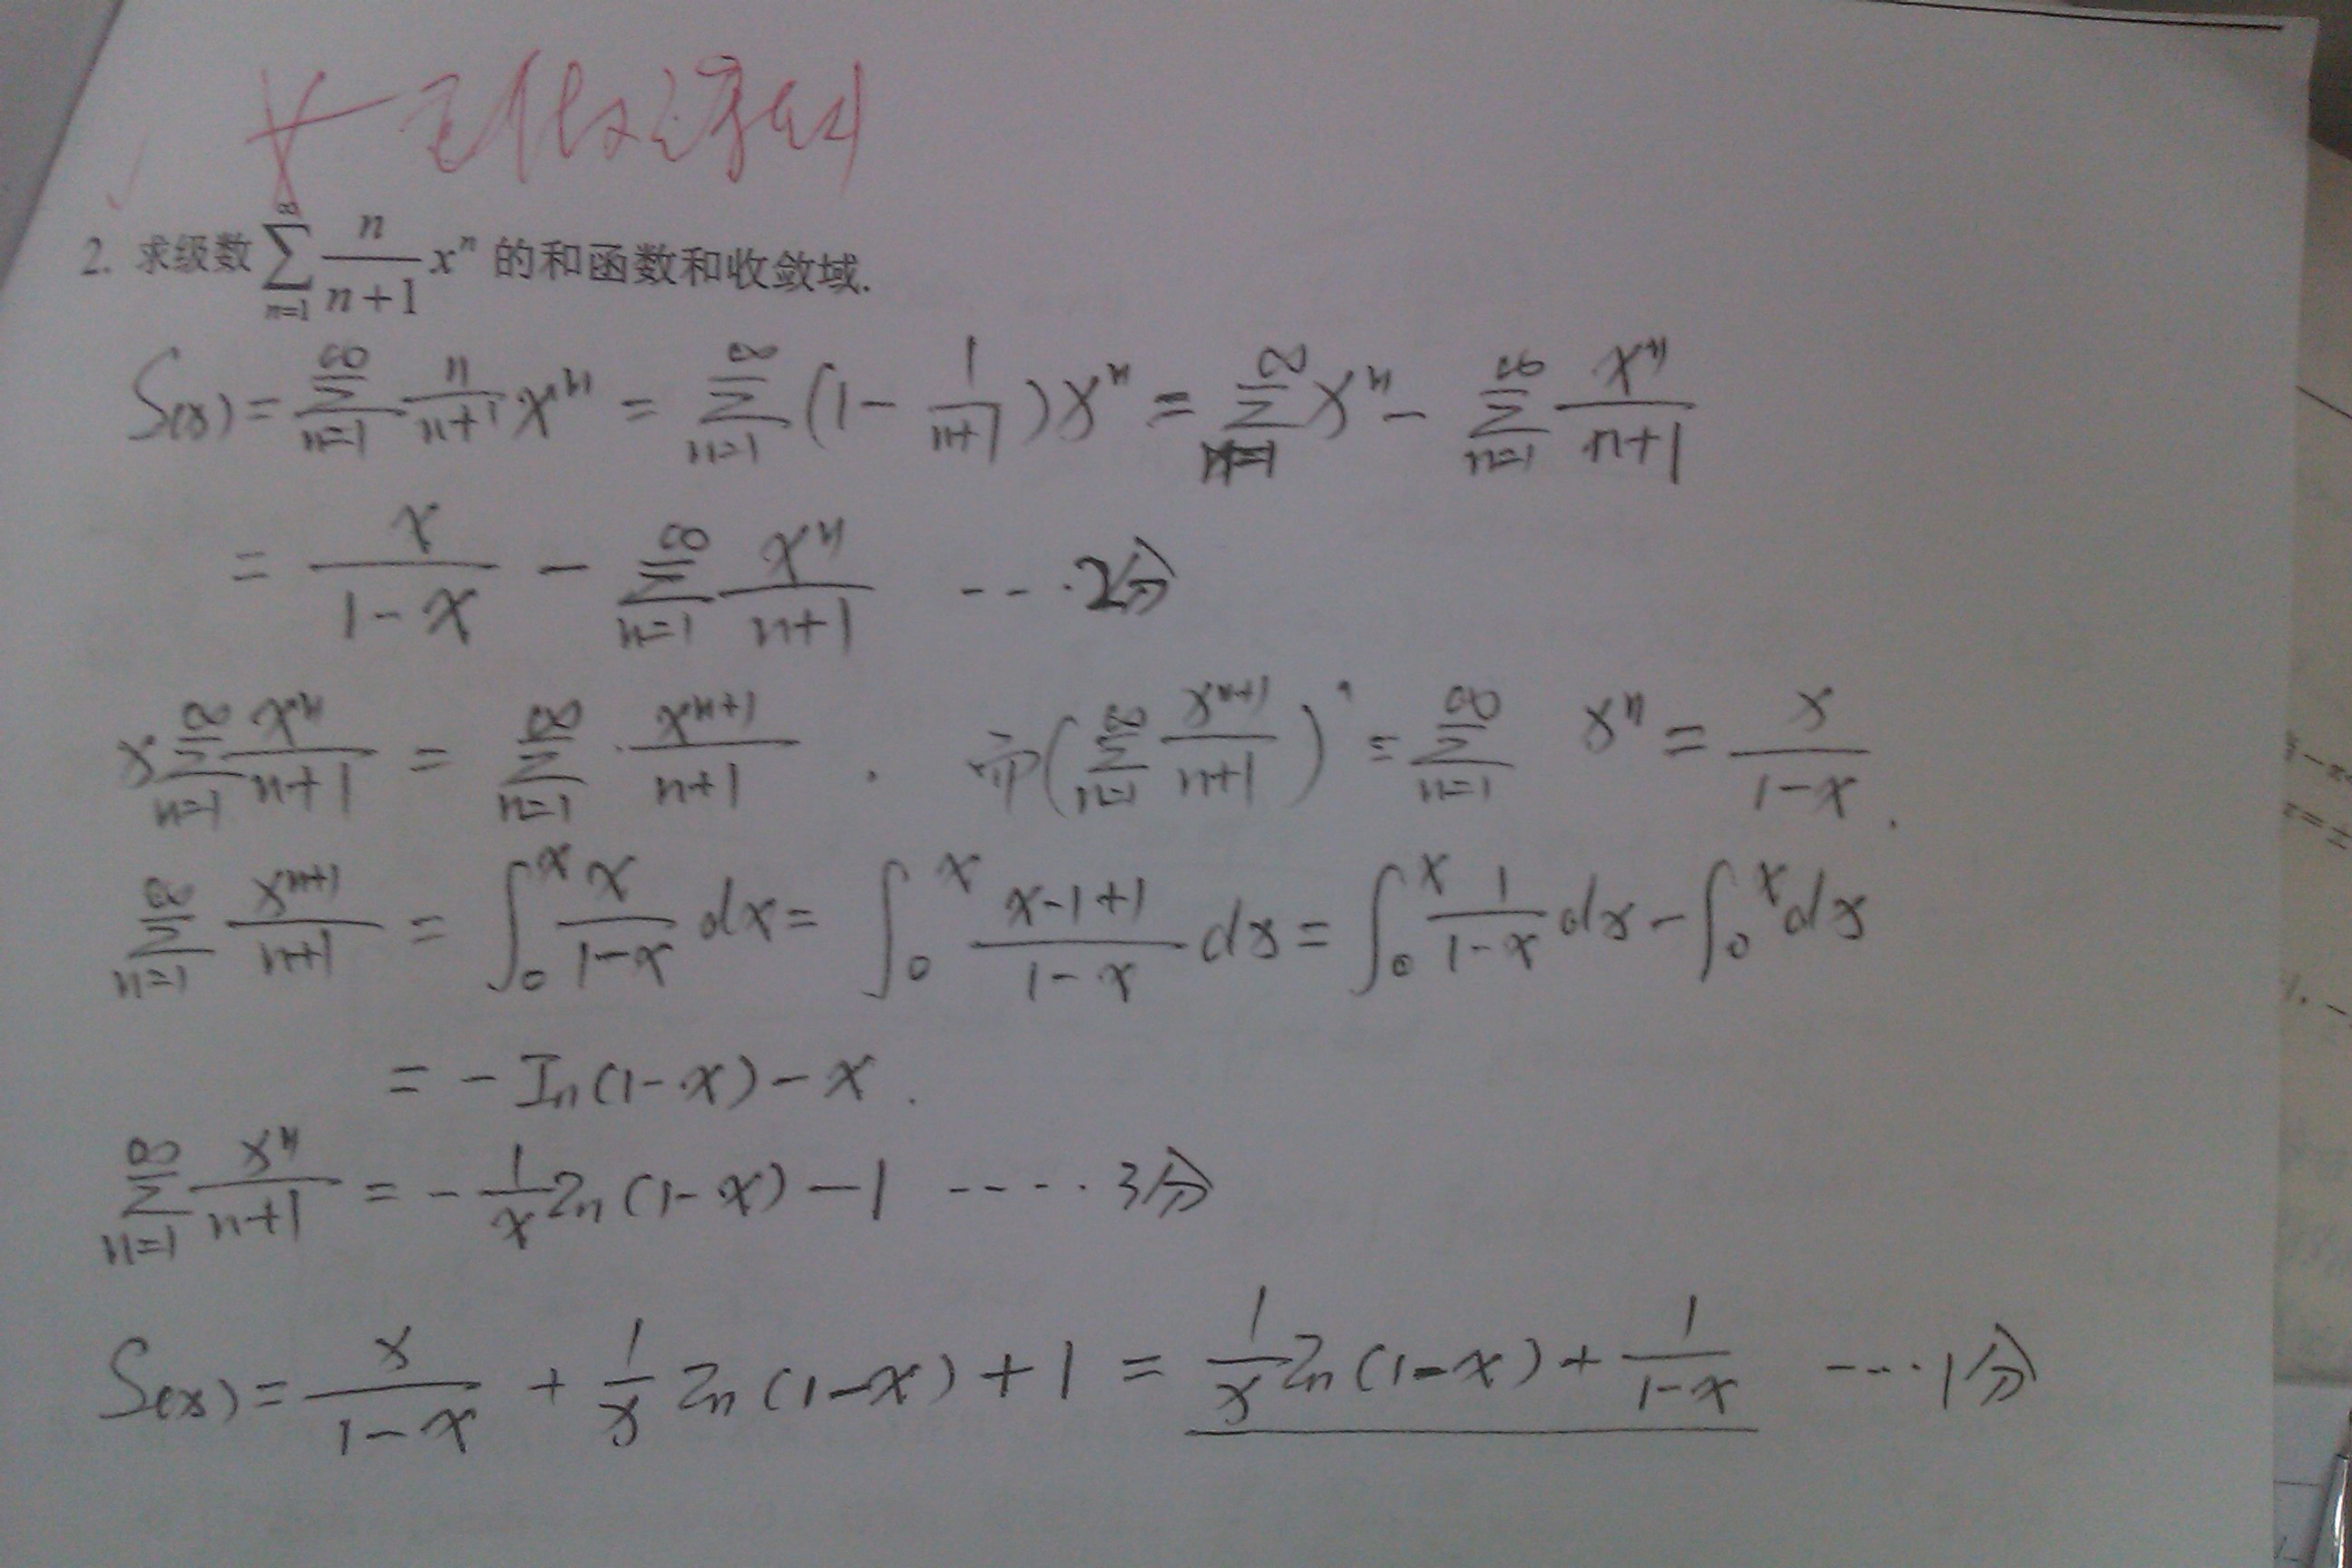 2. 求级数 ∑_{n=1}^{∞} n/(n+1) x^n 的和函数和收敛域.
S(x) = ∑_{n=1}^{∞} n/(n+1) x^n = ∑_{n=1}^{∞} (1 - 1/(n+1)) x^n = ∑_{n=1}^{∞} x^n - ∑_{n=1}^{∞} x^n/(n+1)
= x/(1-x) - ∑_{n=1}^{∞} x^n/(n+1) ---·2分
x∑_{n=1}^{∞} x^n/(n+1) = ∑_{n=1}^{∞} x^{n+1}/(n+1) . (∑_{n=1}^{∞} x^{n+1}/(n+1))' = ∑_{n=1}^{∞} x^n = x/(1-x).
∑_{n=1}^{∞} x^{n+1}/(n+1) = ∫_0^x x/(1-x) dx = ∫_0^x (x-1+1)/(1-x) dx = ∫_0^x 1/(1-x) dx - ∫_0^x dx
= - In(1-x) - x .
∑_{n=1}^{∞} x^n/(n+1) = - 1/x ln(1-x) - 1 ----·3分
S(x) = x/(1-x) + 1/x ln(1-x) + 1 = 1/x ln(1-x) + 1/(1-x) ---·1分